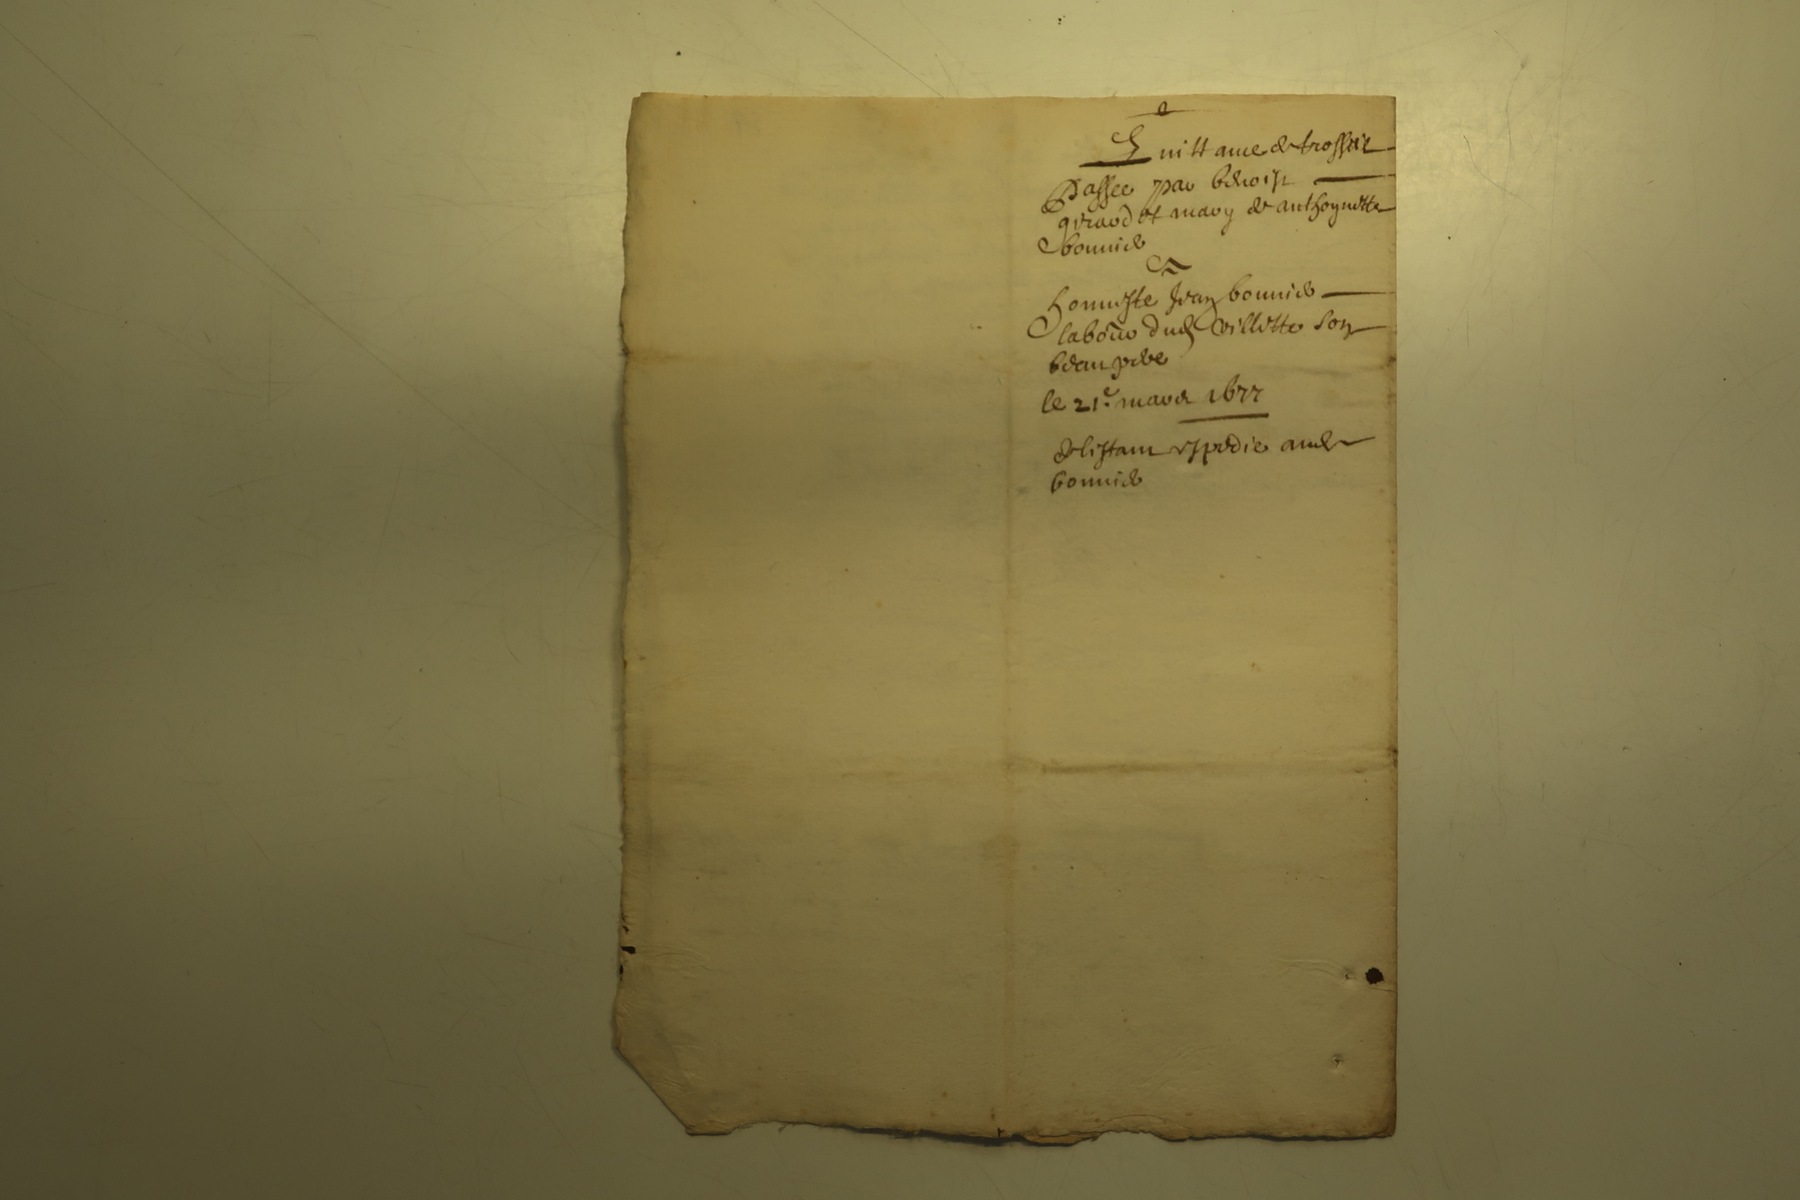 Quittance de trossel
Passee par benoist
girard et mary de anthoynette
bonnide
A
honneste Jean bonnide
labour du villette son
beau pere
le 21e mars 1677
expedie aud
bonnide